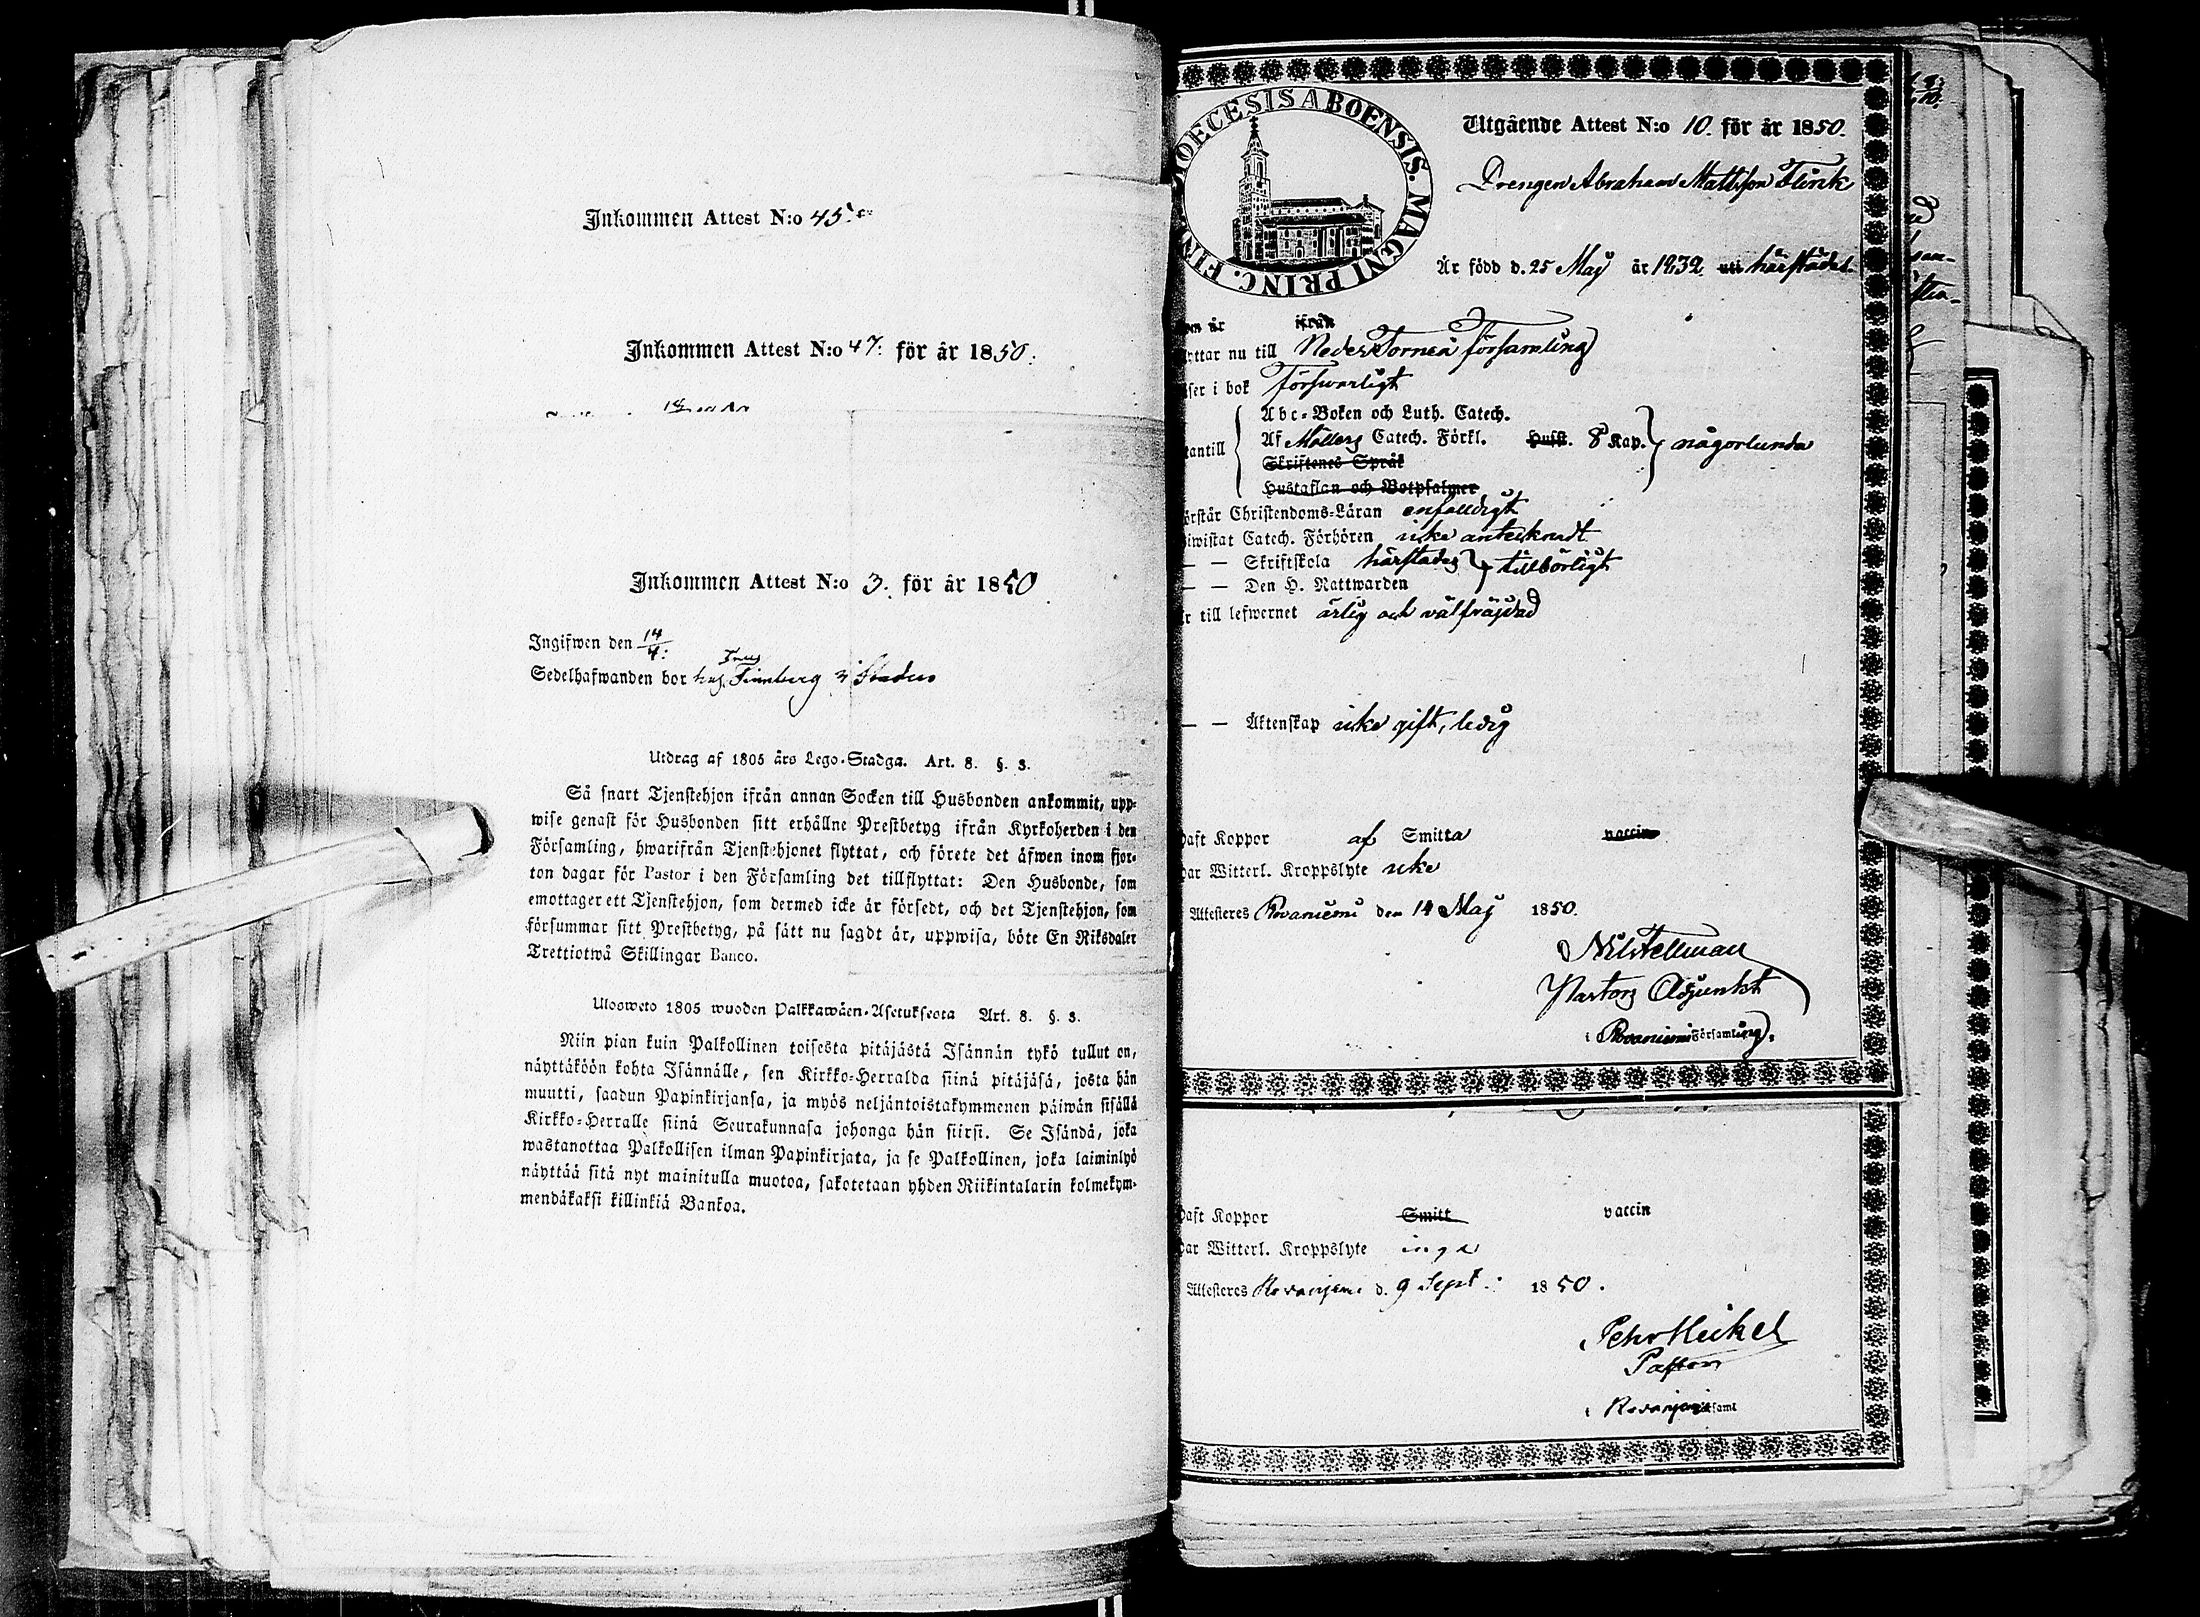 Inkommen Attest N:o 45.
Inkommen Attest N:o 47: för år 1850.
Inkommen Attest N:o 3. för år 1850
Ingifwen den 14/4:
Sedelhafwanden bor hos Finnberg i Staden
Utdrag af 1805 års Lego-Stadga. Art. 8. §. 3.
Så snart Tjenstehjon ifrån annan Socken till Husbonden ankommit, upp-
wise genast för Husbonden sitt erhållne Prestbetyg ifrån Kyrkoherden i den
Församling, hwarifrån Tjenstehjonet flyttat, och förete det äfwen inom fjor-
ton dagar för Pastor i den Församling det tillflyttat: Den Husbonde, som
emottager ett Tjenstehjon, som dermed icke är försedt, och det Tjenstehjon, som
försummar sitt Prestbetyg, på sätt nu sagdt är, uppwisa, böte En Riksdaler
Trettiotwå Skillingar Banco.
Ulosweto 1805 wuoden Palkkawäen-Asetuksesta Art. 8. §. 3.
Niin pian kuin Palkollinen toisesta pitäjästä Isännän tykö tullut on,
näyttäköön kohta Isännälle, sen Kirkko-Herralda siinä pitäjäsä, josta hän
muutti, saadun Papinkirjansa, ja myös neljäntoistakymmenen päiwän sisällä
Kirkko-Herralle siinä Seurakunnasa johonga hän siirsi. Se Isändä, joka
wastanottaa Palkollisen ilman Papinkirjata, ja se Palkollinen, joka laiminlyö
näyttää sitä nyt mainitulla muotoa, sakotetaan yhden Riikintalarin kolmekym-
mendäkaksi killinkiä Bankoa.
DIOECESIS ABOENSIS. MAGNI PRINC. FIN
Utgående Attest N:o 10. för år 1850.
Drengen Abraham Mattsson Flink
Är född d. 25 Maj år 1832 uti härstädes
ifrån
yttar nu till Neder Torneå församling
äser i bok försvarligt
Abc-Boken och Luth. Catech.
Af Möllers Catech. Förkl. Hust. 8 Kap. någorlunda
tantill
Skriftenes Språk
Hustaflan och Botpsalmer
örstår Christendoms-Läran enfaldigt
iwistat Catech. Förhören icke antecknadt
— — Skriftskola härstädes tillbörligt
— — Den H. Nattwarden
r till lefwernet ärlig och välfräjdad
— — Äktenskap icke gift, ledig
aft Koppor af Smitta vaccin
ar Witterl. Kroppslyte icke
Attesteres Rovaniemi den 14 Maj 1850.
Nils Fellman
Pastors Adjunkt
i Rovaniemi Församling.
aft Koppor Smitt vaccin
ar Witterl. Kroppslyte inga
Attesteres Rovaniemi d. 9 Sept. 1850.
Pehr Heikel
Pastor
i Rovaniemi Församl